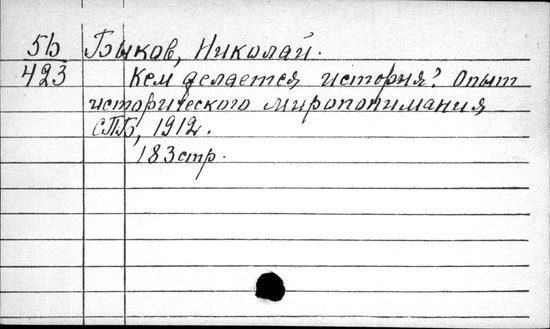 5b Быков, Николай.
423 Кем делается история? Опыт
исторического миропонимания
СПБ, 1912.
183стр.